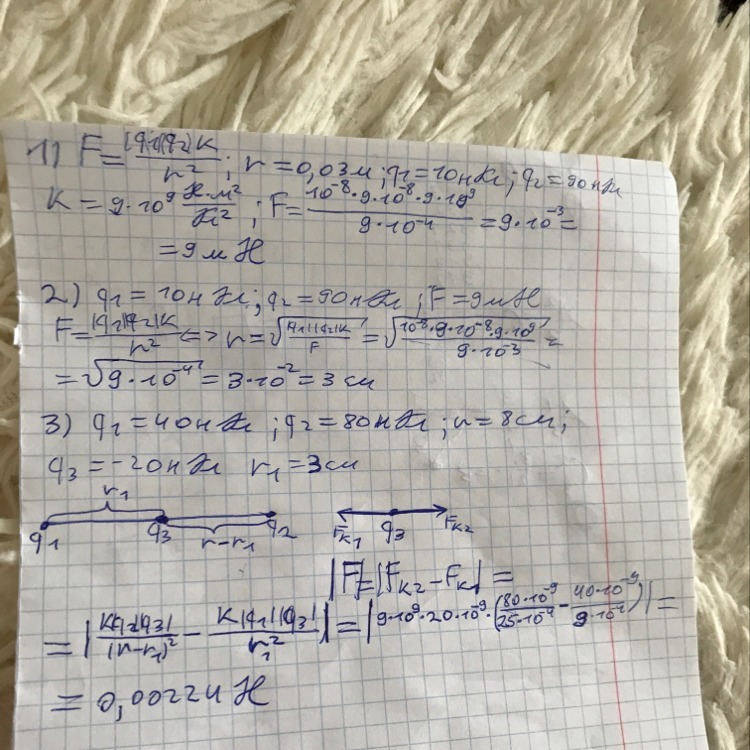 1) F = |q1||q2|K / r² ; r = 0,03м ; q1 = 10нКл ; q2 = 90нКл
K = 9·10⁹ Н·м²/Кл² ; F = 10⁻⁸·9·10⁻⁸·9·10⁹ / 9·10⁻⁴ = 9·10⁻³ =
= 9 мН
2) q1 = 10нКл ; q2 = 90нКл ; F = 9мН
F = |q1||q2|K / r² <=> r = √(|q1||q2|K / F) = √(10⁻⁸·9·10⁻⁸·9·10⁹ / 9·10⁻³) =
= √(9·10⁻⁴) = 3·10⁻² = 3 см
3) q1 = 40нКл ; q2 = 80нКл ; r = 8см ;
q3 = -20нКл r1 = 3см
r1
q1 q3 r-r1 q2
Fк1 q3 Fк2
|F| = |Fк2 - Fк1| =
= |K|q2||q3| / (r-r1)² - K|q1||q3| / r1²| = |9·10⁹·20·10⁻⁹·(80·10⁻⁹ / 25·10⁻⁴ - 40·10⁻⁹ / 9·10⁻⁴)| =
= 0,00224 Н